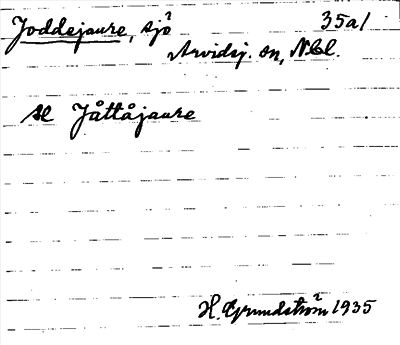 Joddejaure, sjö 35a1
Arvidsj. sn, Nbl.
se Jåttåjaure
H. Grundström 1935